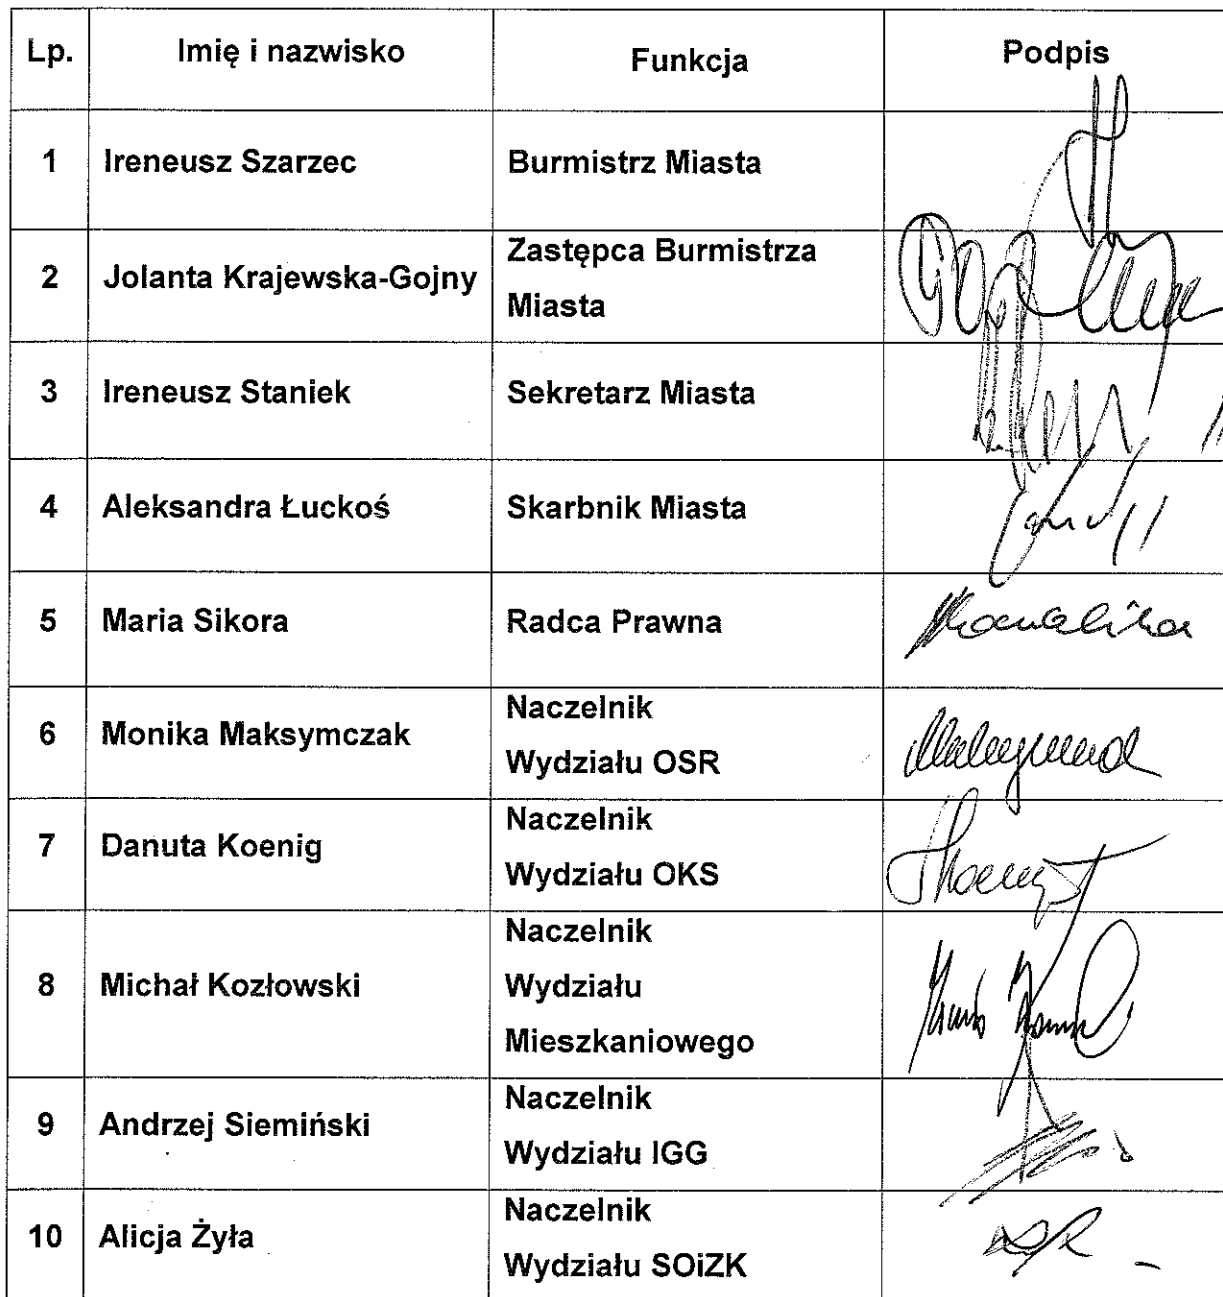 Lp. Imię i nazwisko Funkcja Podpis
1 Ireneusz Szarzec Burmistrz Miasta
2 Jolanta Krajewska-Gojny Zastępca Burmistrza
Miasta
3 Ireneusz Staniek Sekretarz Miasta
4 Aleksandra Łuckoś Skarbnik Miasta
5 Maria Sikora Radca Prawna
6 Monika Maksymczak Naczelnik
Wydziału OSR
7 Danuta Koenig Naczelnik
Wydziału OKS
8 Michał Kozłowski Naczelnik
Wydziału
Mieszkaniowego
9 Andrzej Siemiński Naczelnik
Wydziału IGG
10 Alicja Żyła Naczelnik
Wydziału SOiZK